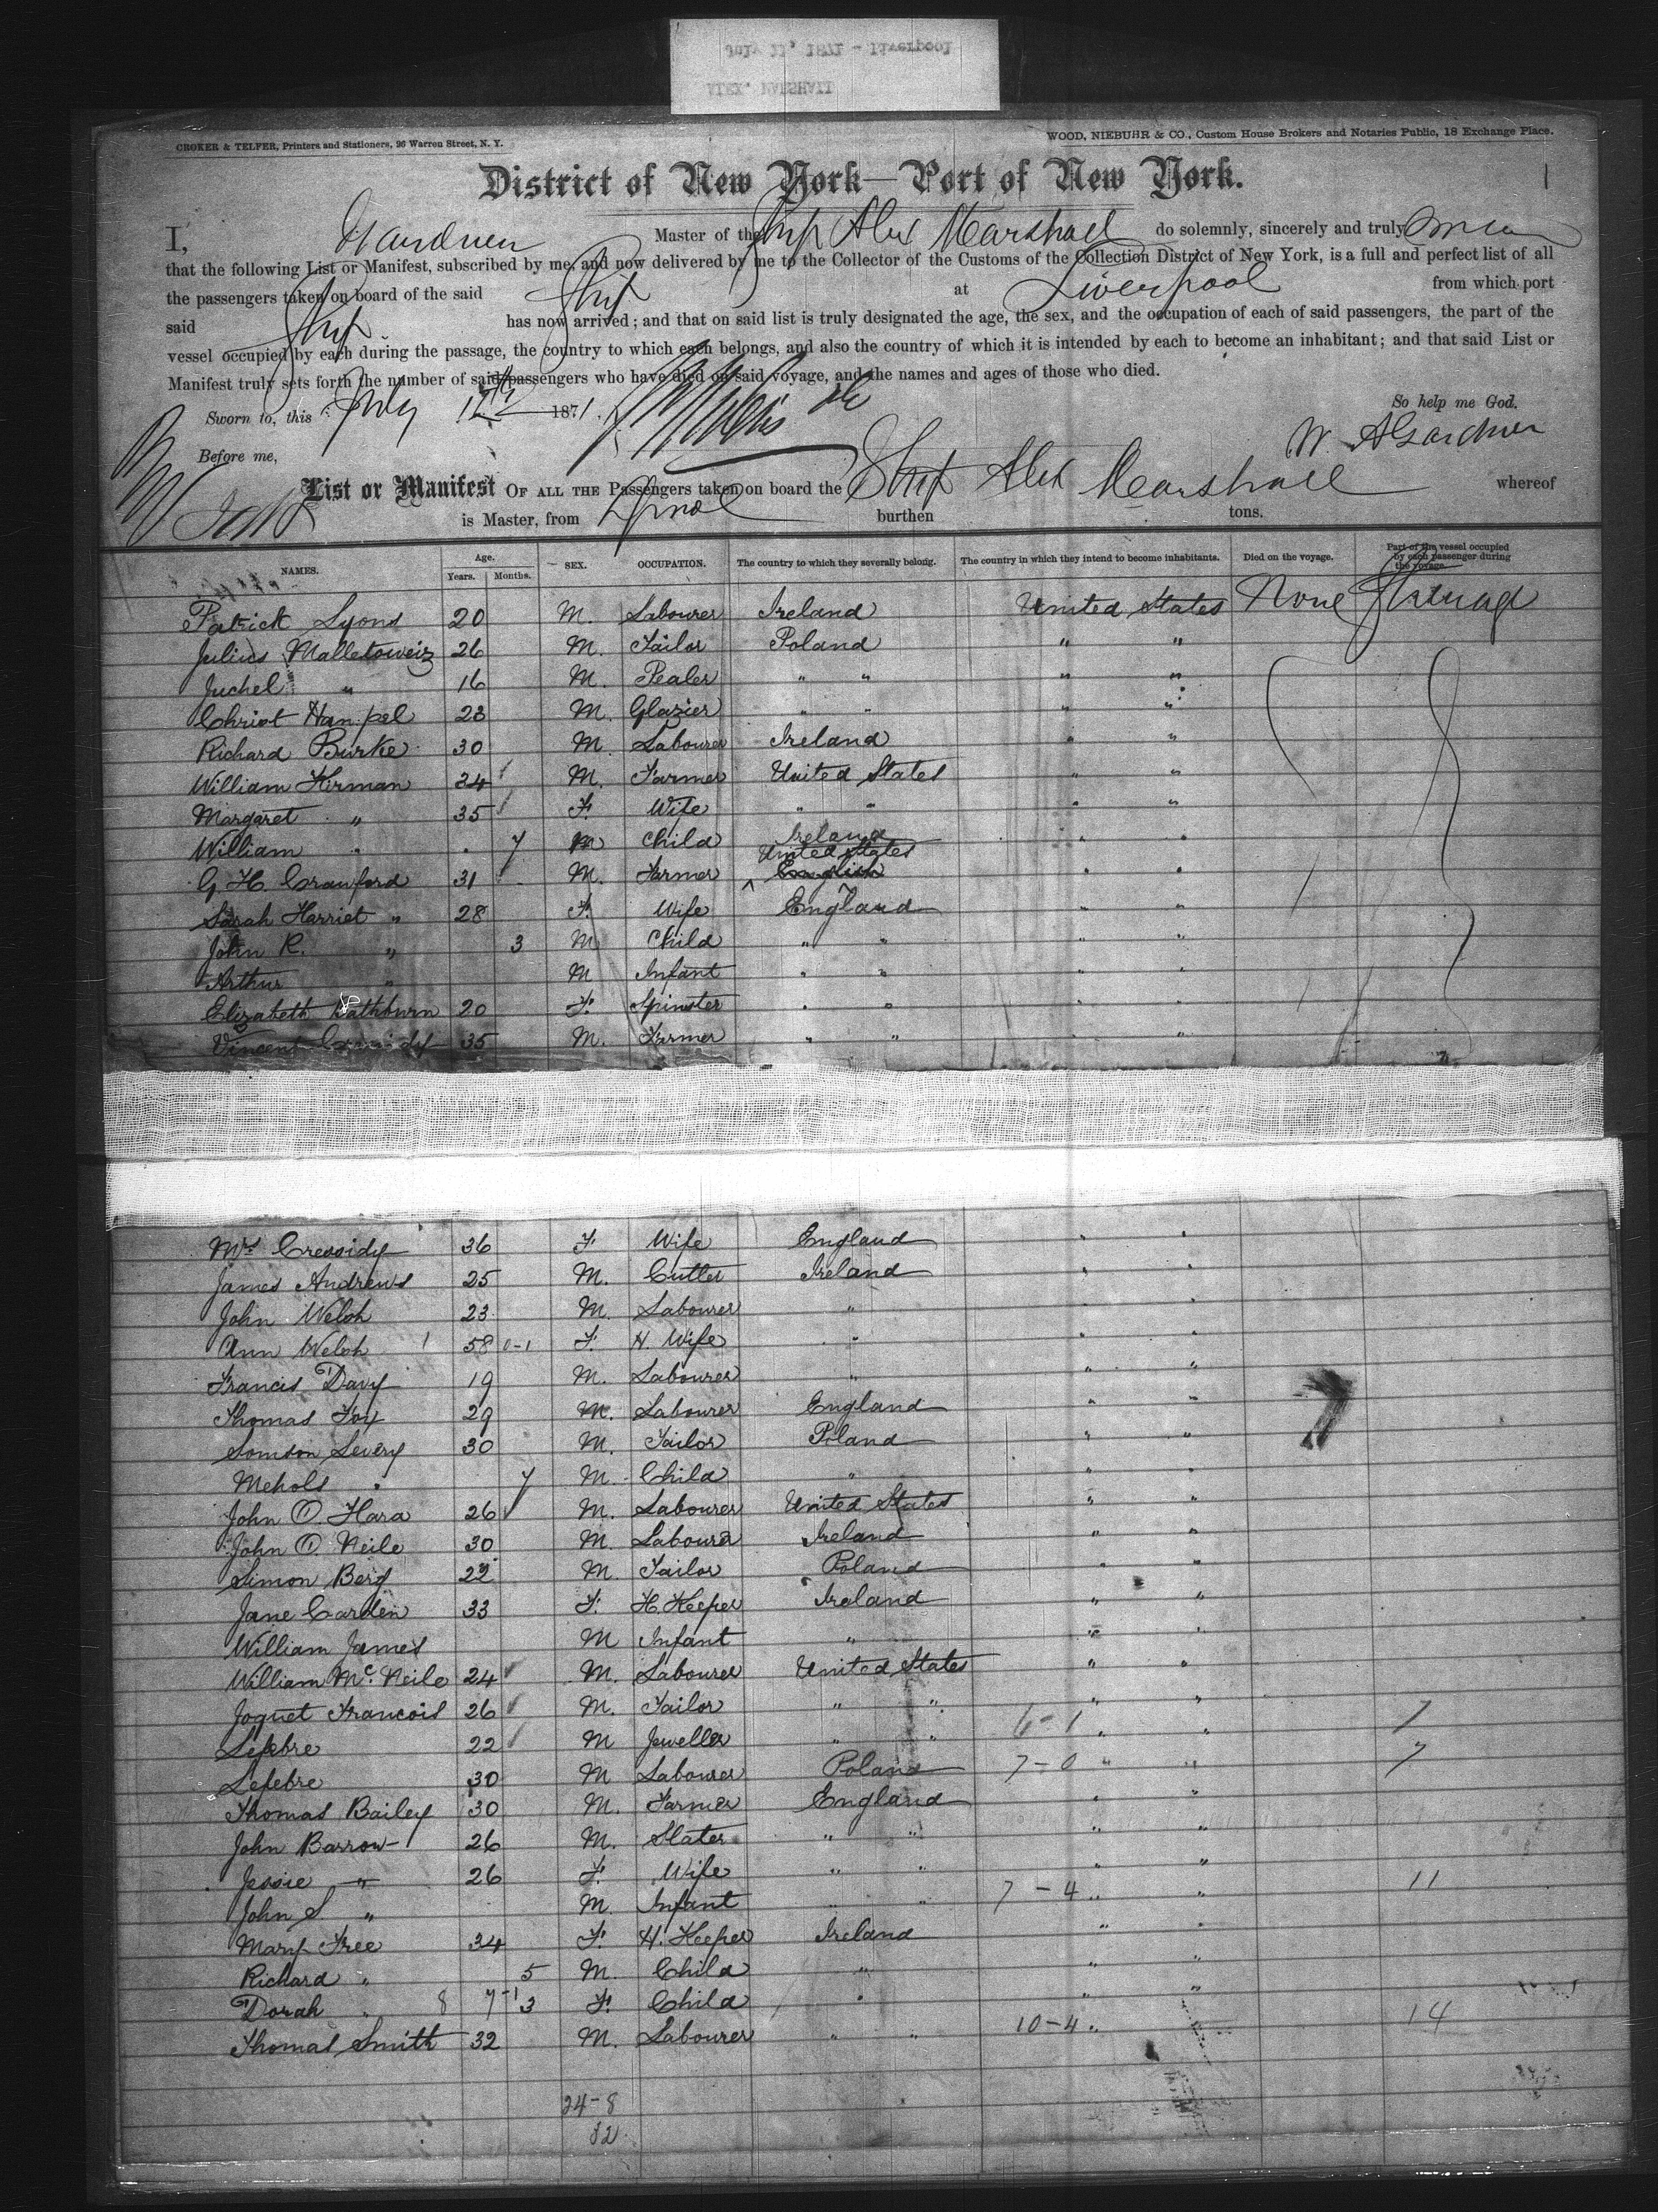 July 11, 1871 - Liverpool
ALEX. MARSHALL
CROKER & TELFER, Printers and Stationers, 26 Warren Street, N. Y.
WOOD, NIEBUHR & CO., Custom House Brokers and Notaries Public, 18 Exchange Place.
District of New York—Port of New York.
I, Gardner Master of the Ship Alex Marshall do solemnly, sincerely and truly
that the following List or Manifest, subscribed by me, and now delivered by me to the Collector of the Customs of the Collection District of New York, is a full and perfect list of all
the passengers taken on board of the said Ship at Liverpool from which port
said Ship has now arrived; and that on said list is truly designated the age, the sex, and the occupation of each of said passengers, the part of the
vessel occupied by each during the passage, the country to which each belongs, and also the country of which it is intended by each to become an inhabitant; and that said List or
Manifest truly sets forth the number of said passengers who have died on said voyage, and the names and ages of those who died.
Sworn to, this July 12th 1871.
So help me God,
W. A Gardner
Before me,
List or Manifest OF ALL THE Passengers taken on board the Ship Alex Marshall whereof
is Master, from Lpool burthen tons.
NAMES. Age. Years. Months. SEX. OCCUPATION. The country to which they severally belong. The country in which they intend to become inhabitants. Died on the voyage. Part of the vessel occupied by each passenger during the voyage.
Patrick Lyons 20 M. Labourer Ireland United States None Steerage
Julius Malletoweiz 26 M. Tailor Poland " "
Juchel " 16 M. Pealer " " " "
Christ Hampel 23 M. Glazier " " " "
Richard Burke 30 M. Labourer Ireland " "
William Kirman 34 M. Farmer United States " "
Margaret " 35 F. Wife " " " "
William " 7 M Child Ireland " "
G. H. Crawford 31 M. Farmer United States English " "
Sarah Harriet " 28 F. Wife England " "
John R. " 3 M Child " " " "
Arthur " M Infant " " " "
Elizabeth Rathburn 20 F. Spinster " " " "
Vincent 35 M. Farmer " " " "
Mrs Cressidy 36 F Wife England " "
James Andrews 25 M. Cutler Ireland " "
John Welsh 23 M. Labourer " " "
Ann Welsh 1 58 0-1 F. H. Wife " " "
Francis Davy 19 M. Labourer " " "
Thomas Foy 29 M. Labourer England " "
Somson Levery 30 M. Tailor Poland " "
Mehols " 7 M. Child " " "
John O. Hara 26 M. Labourer United States " "
John O. Neile 30 M. Labourer Ireland " "
Simon Berg 22 M. Tailor Poland " "
Jane Carden 33 F. H. Keeper Ireland " "
William James M Infant " " "
William Mc. Neile 24 M. Labourer United States " "
Joquet Francois 26 M. Tailor " " " "
Lefebre 22 M Jeweller " " 6-1 " " 7
Lefebre 30 M Labourer Poland 7-0 " " 7
Thomas Bailey 30 M. Farmer England " "
John Barrow 26 M. Slater " " " "
Jessie " 26 F. Wife " " " "
John S " M Infant " " 7-4 " " 11
Mary Free 34 F. H. Keeper Ireland " "
Richard " 5 M. Child " " "
Dorah " 8 7-1 3 F. Child " " "
Thomas Smith 32 M. Labourer " " 10-4 " " 14
24-8
32